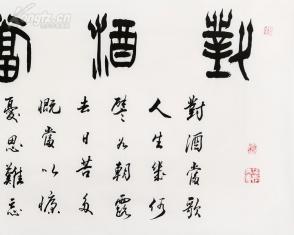 對酒當
對酒當歌
人生幾何
譬如朝露
去日苦多
慨當以慷
憂思難忘